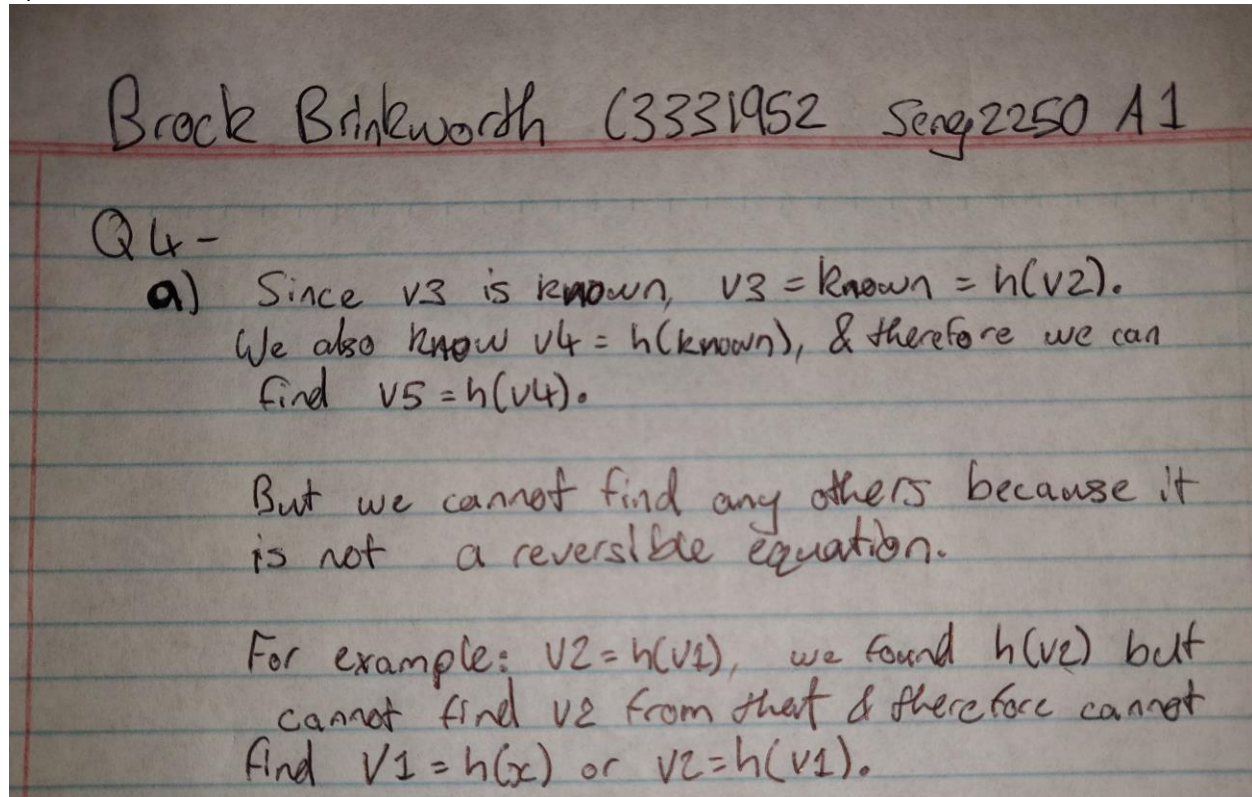 Brock Brinkworth C3331952 Seng2250 A1
Q4-
a) Since v3 is known, v3 = known = h(v2).
We also know v4 = h(known), & therefore we can
find v5 = h(v4).
But we cannot find any others because it
is not a reversible equation.
For example: v2 = h(v1), we found h(v2) but
cannot find v2 from that & therefore cannot
find V1 = h(x) or v2 = h(v1).